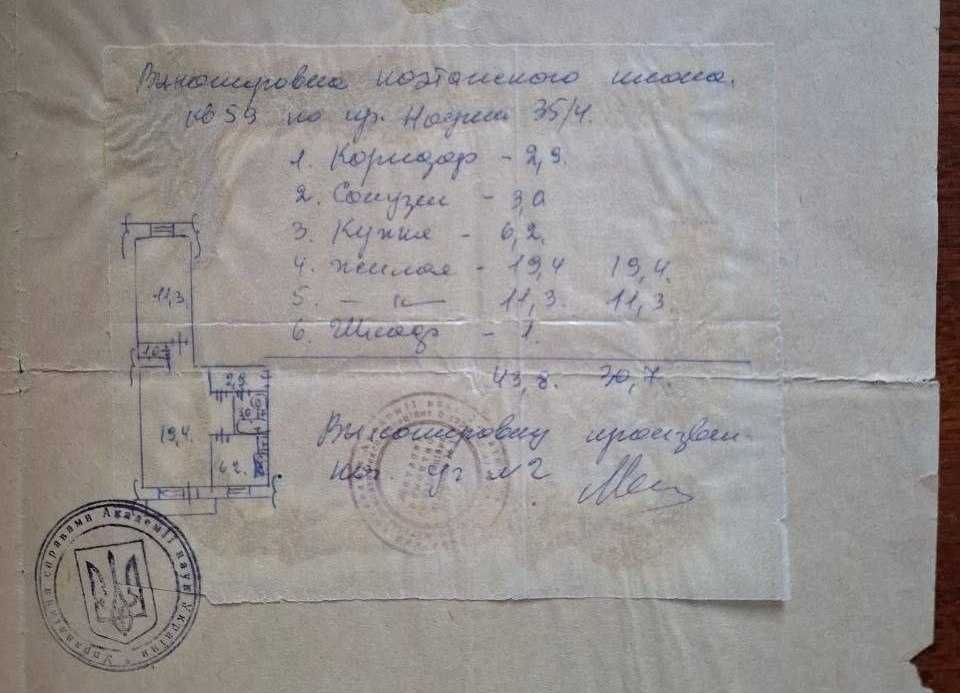 Выкопировка поэтажного плана.
кв 59 по пр. Науки 35/4.
1. Коридор - 2,9.
2. Санузел - 3,0
3. Кухня - 6,2.
4. Жилая - 19,4 19,4.
5. — " — 11,3. 11,3
6. Шкаф - 1.
43,8. 30,7.
Выкопировку произвел
№2
11,3
1,0
2,9
19,4.
6,2.
Управління справами Академії наук України